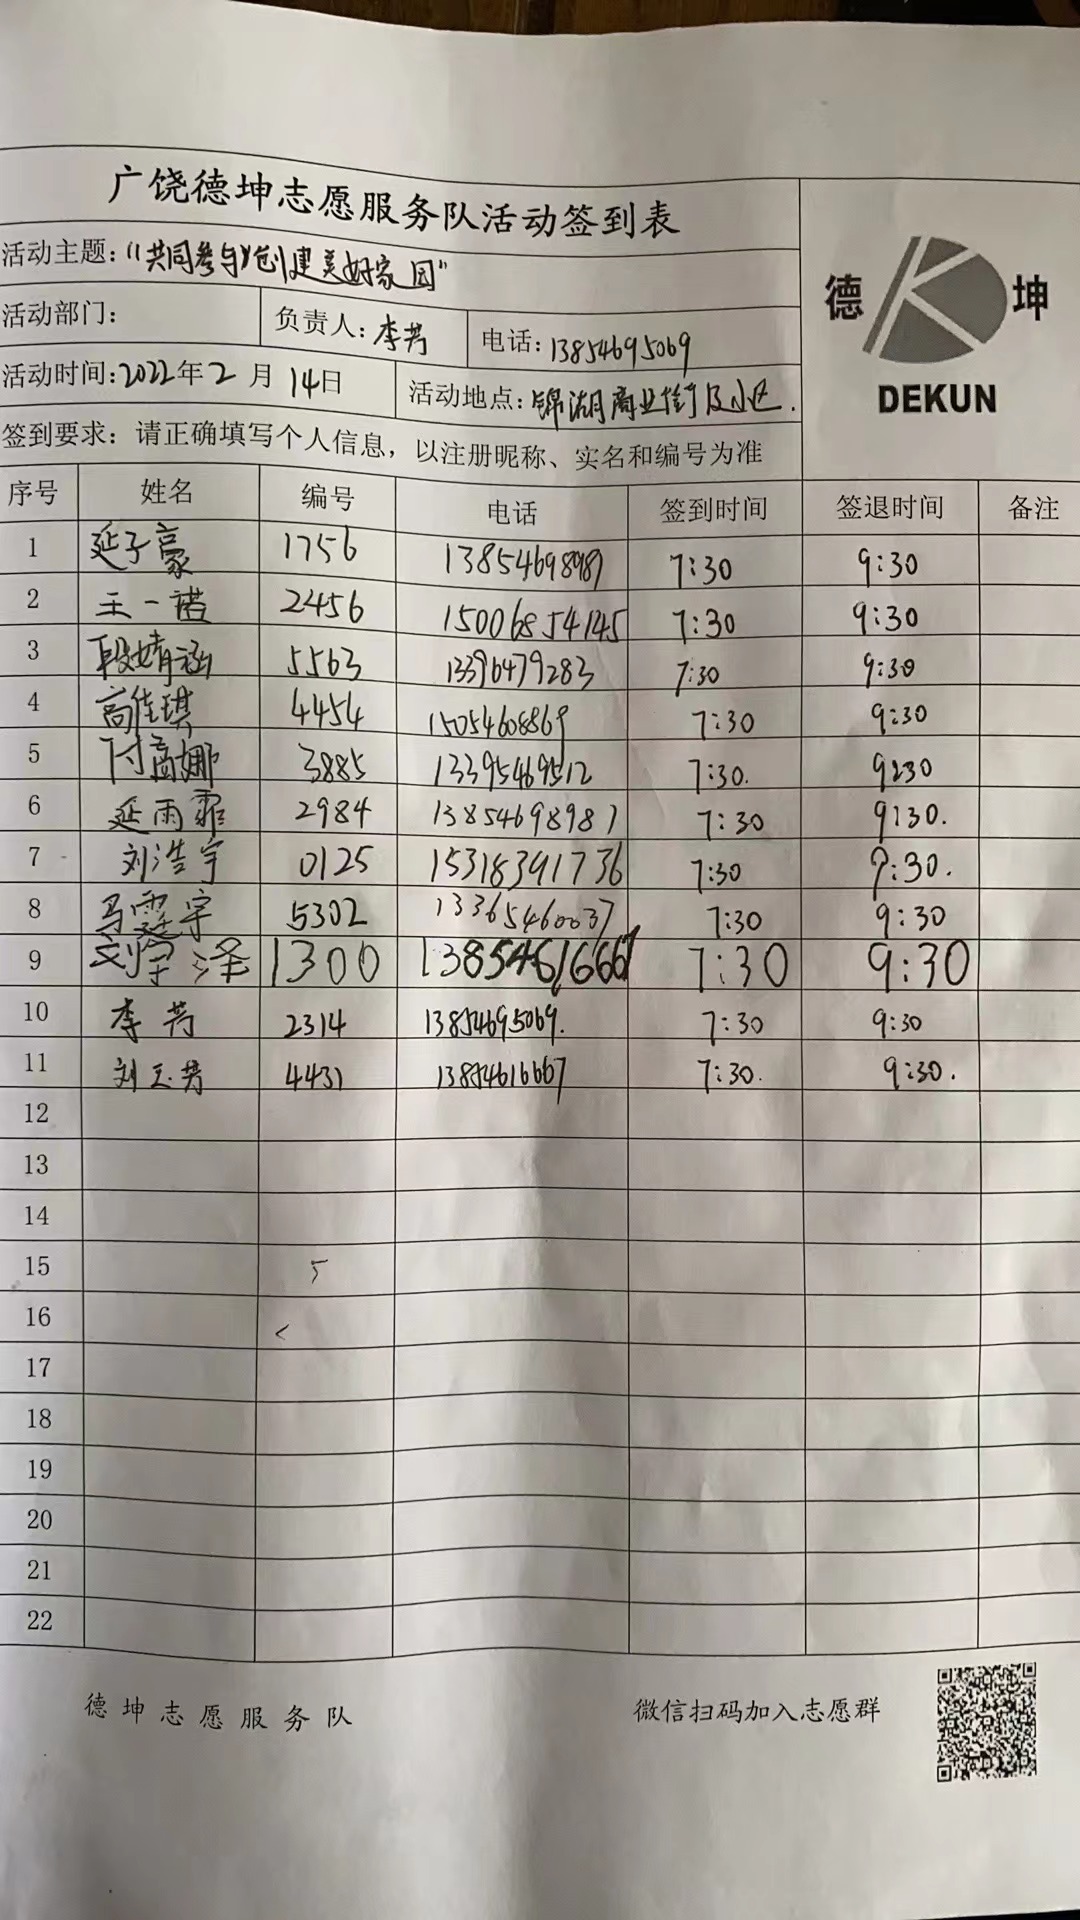 广饶德坤志愿服务队活动签到表
德 坤
DEKUN
活动主题：“共同参与创建美好家园”
活动部门： 负责人：李芳 电话：13854695069
活动时间：2022年2月14日 活动地点：锦湖商业街及小区.
签到要求：请正确填写个人信息，以注册昵称、实名和编号为准
序号 姓名 编号 电话 签到时间 签退时间 备注
1 延子豪 1756 13854698987 7:30 9:30
2 王一诺 2456 15006854145 7:30 9:30
3 段婧涵 5563 13396479283 7:30 9:30
4 高佳琪 4454 15054608869 7:30 9:30
5 3885 13395469512 7:30. 9:30
6 延雨霏 2984 13854698987 7:30 9:30.
7 刘浩宇 0125 15318391736 7:30 9:30.
8 马霆宇 5302 13365460037 7:30 9:30
9 刘宇泽 1300 13854616667 7:30 9:30
10 李芳 2314 13854695069. 7:30 9:30
11 刘玉芳 4431 13854616667 7:30. 9:30.
12
13
14
15
16
17
18
19
20
21
22
德坤志愿服务队 微信扫码加入志愿群